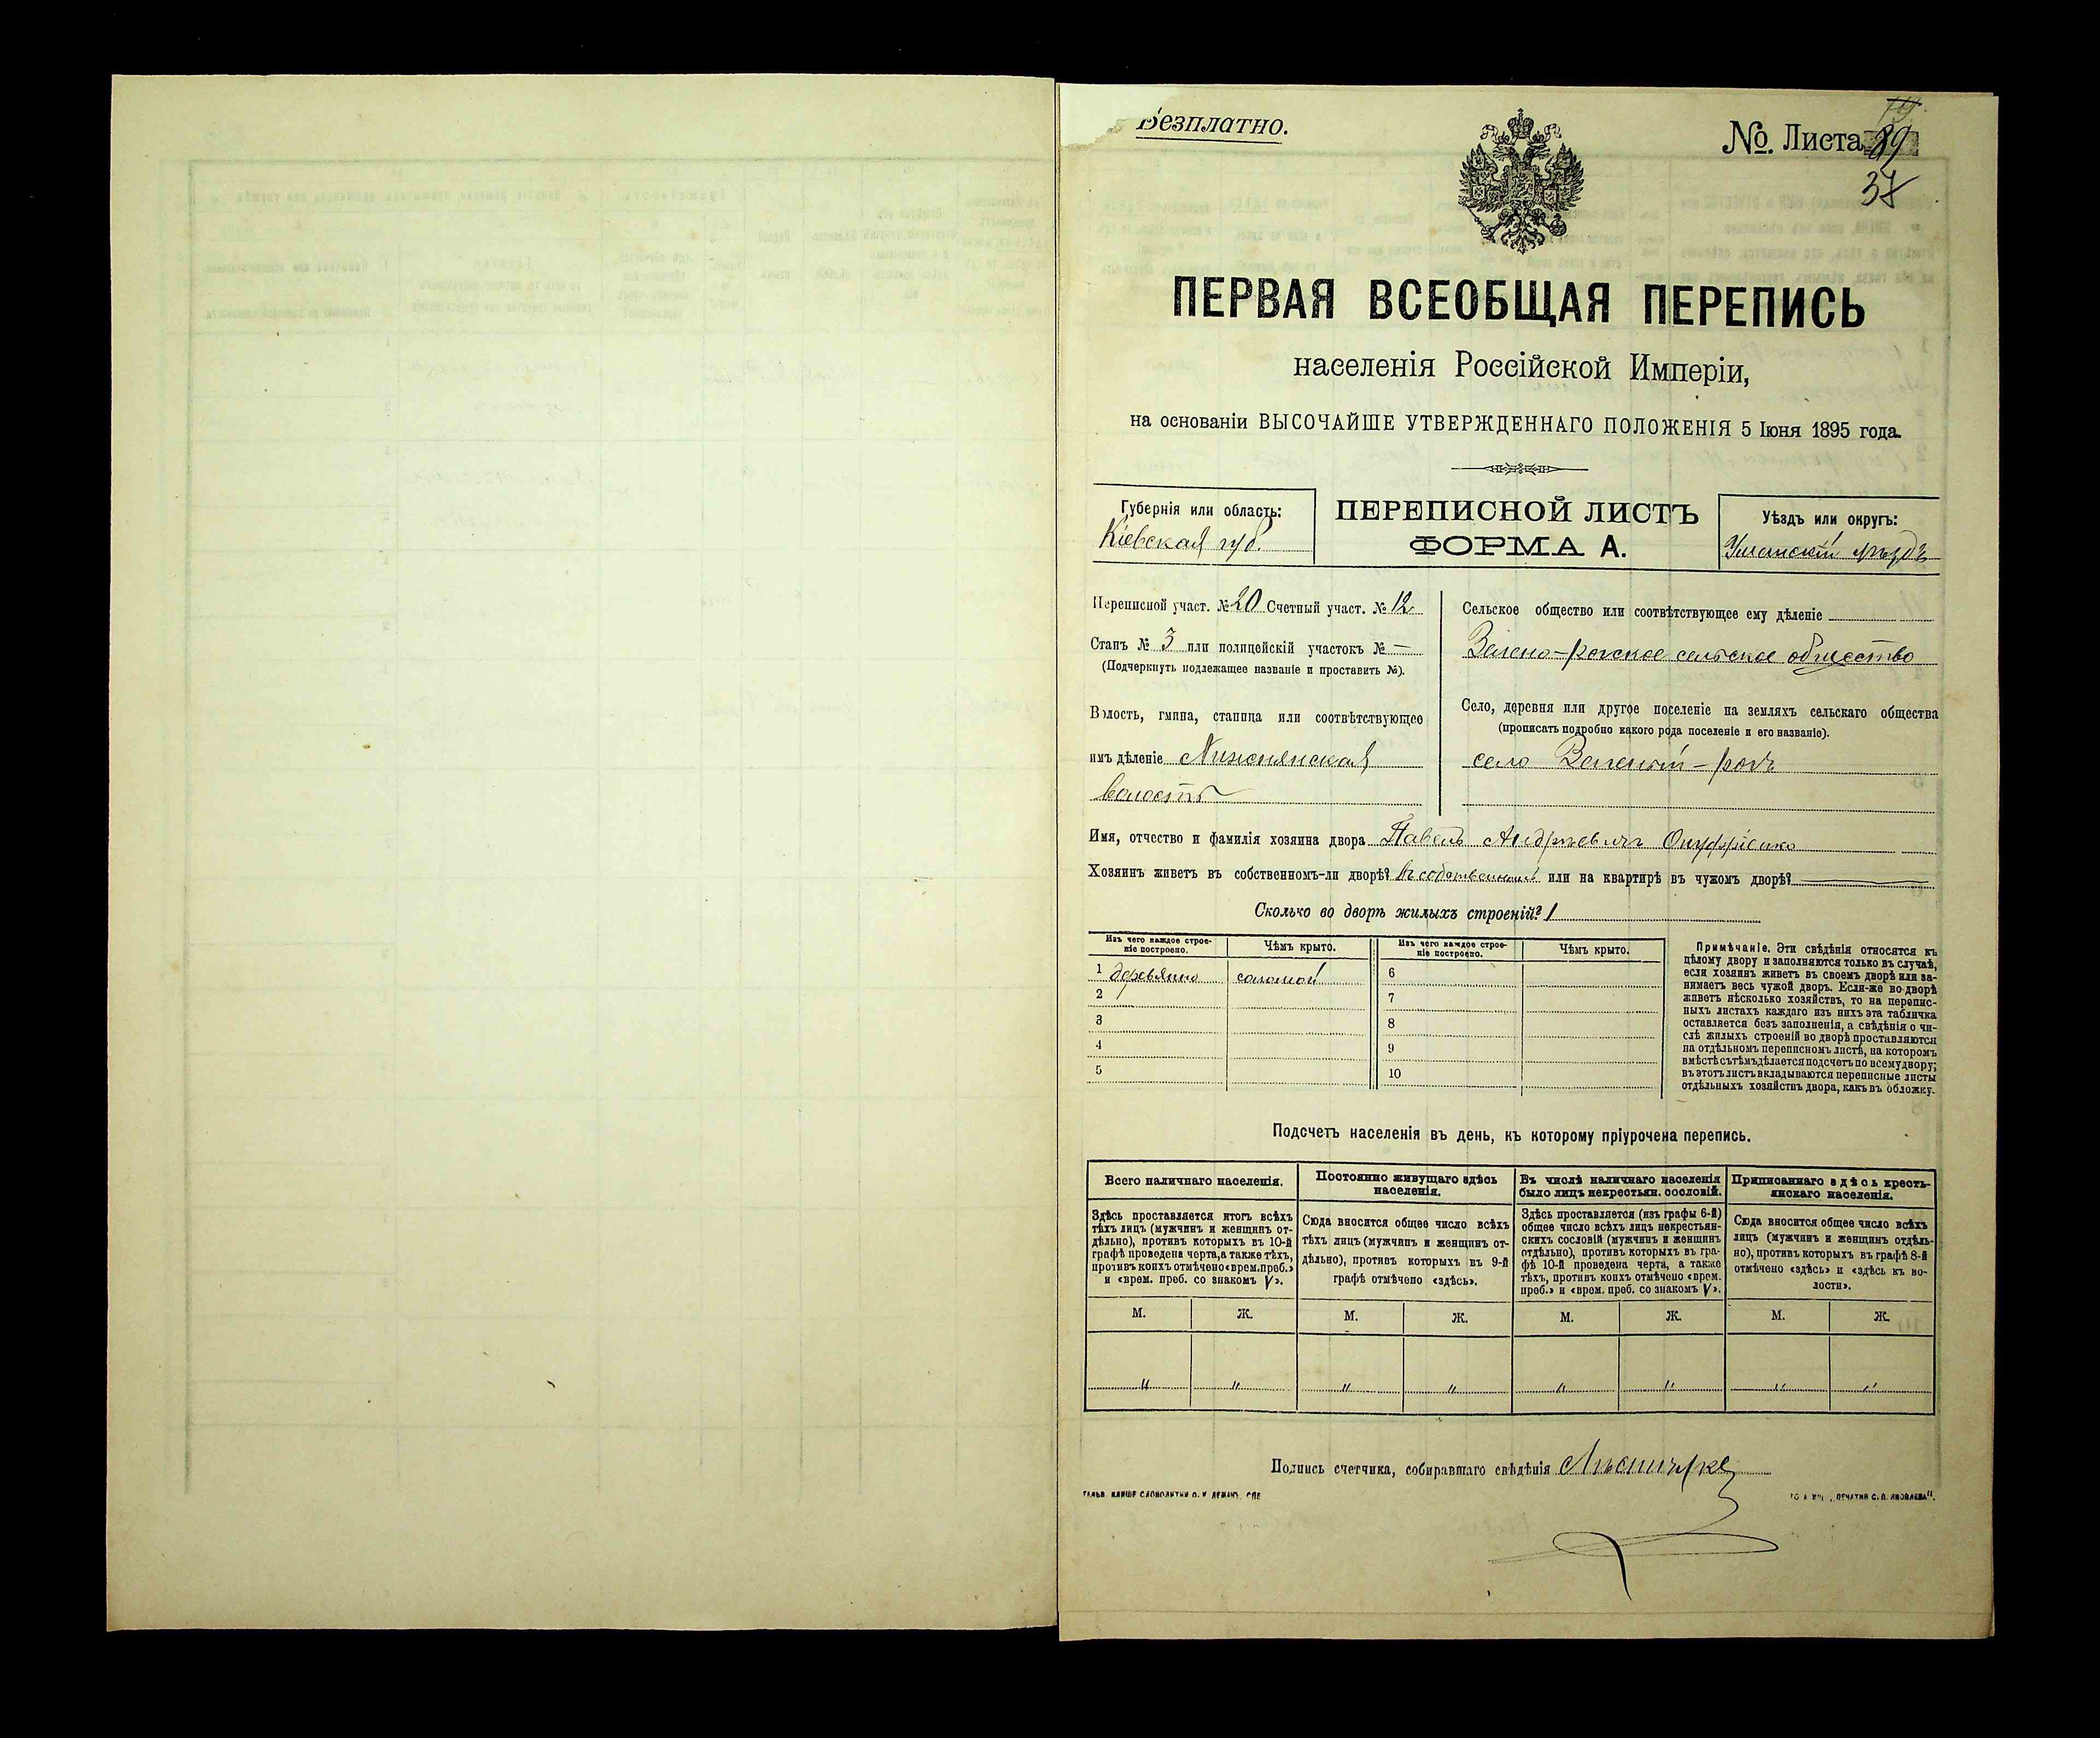 Безплатно.
№. Листа 89
37
ПЕРВАЯ ВСЕОБЩАЯ ПЕРЕПИСЬ
населенія Россійской Имперіи,
на основаніи ВЫСОЧАЙШЕ УТВЕРЖДЕННАГО ПОЛОЖЕНІЯ 5 Іюня 1895 года.
Губернія или область:
Кіевская губ.
ПЕРЕПИСНОЙ ЛИСТЪ
ФОРМА А.
Уѣздъ или округъ:
Уманскій уѣздъ
Переписной участ. № 20 Счетный участ. № 12
Станъ № 3 или полицейскій участокъ № —
(Подчеркнуть подлежащее названіе и проставить №).
Волость, гмина, станица или соотвѣтствующее
имъ дѣленіе
волость
Сельское общество или соотвѣтствующее ему дѣленіе
Зелено-рогское сельское общество
Село, деревня или другое поселеніе на земляхъ сельскаго общества
(прописать подробно какого рода поселеніе и его названіе).
село Зеленый-рогъ
Имя, отчество и фамилія хозяина двора Павелъ Андреевичъ Онуфріенко
Хозяинъ живетъ въ собственномъ-ли дворѣ? въ собственномъ или на квартирѣ въ чужомъ дворѣ? —
Сколько во дворѣ жилыхъ строеній? 1
Изъ чего каждое строе-
ніе построено.
Чѣмъ крыто.
Изъ чего каждое строе-
ніе построено.
Чѣмъ крыто.
1 деревянно соломой 6
2 7
3 8
4 9
5 10
Примѣчаніе. Эти свѣдѣнія относятся къ
цѣлому двору и заполняются только въ случаѣ,
если хозяинъ живетъ въ своемъ дворѣ или за-
нимаетъ весь чужой дворъ. Если-же во дворѣ
живетъ нѣсколько хозяйствъ, то на перепис-
ныхъ листахъ каждаго изъ нихъ эта табличка
оставляется безъ заполненія, а свѣдѣнія о чи-
слѣ жилыхъ строеній во дворѣ проставляются
на отдѣльномъ переписномъ листѣ, на которомъ
вмѣстѣ съ тѣмъ дѣлается подсчетъ по всему двору;
въ этотъ листъ вкладываются переписные листы
отдѣльныхъ хозяйствъ двора, какъ въ обложку.
Подсчетъ населенія въ день, къ которому пріурочена перепись.
Всего наличнаго населенія.
Здѣсь проставляется итогъ всѣхъ
тѣхъ лицъ (мужчинъ и женщинъ от-
дѣльно), противъ которыхъ въ 10-й
графѣ проведена черта, а также тѣхъ,
противъ коихъ отмѣчено «врем. преб.»
и «врем. преб. со знакомъ V».
М. Ж.
" "
Постоянно живущаго здѣсь
населенія.
Сюда вносится общее число всѣхъ
тѣхъ лицъ (мужчинъ и женщинъ от-
дѣльно), противъ которыхъ въ 9-й
графѣ отмѣчено «здѣсь».
М. Ж.
" "
Въ числѣ наличнаго населенія
было лицъ некрестьян. сословій.
Здѣсь проставляется (изъ графы 6-й)
общее число всѣхъ лицъ некрестьян-
скихъ сословій (мужчинъ и женщинъ
отдѣльно), противъ которыхъ въ гра-
фѣ 10-й проведена черта, а также
тѣхъ, противъ коихъ отмѣчено «врем.
преб.» и «врем. преб. со знакомъ V».
М. Ж.
" "
Приписаннаго здѣсь кресть-
янскаго населенія.
Сюда вносится общее число всѣхъ
лицъ (мужчинъ и женщинъ отдѣль-
но), противъ которыхъ въ графѣ 8-й
отмѣчено «здѣсь» и «здѣсь къ во-
лости».
М. Ж.
" "
Подпись счетчика, собиравшаго свѣдѣнія